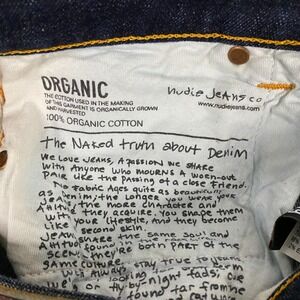 ORGANIC
THE COTTON USED IN THE MAKING
OF THIS GARMENT IS ORGANICALLY GROWN
AND HARVESTED
100% ORGANIC COTTON
nudie jeans co
www.nudiejeans.com
The Naked truth about Denim
We Love Jeans, A passion we share
with Anyone who mourns a worn-out
Pair like the passing of a close friend.
No Fabric Ages quite as beautifully
as Denim; the longer you wear your
Jeans, the more character and
Attitude they acquire. You shape them
with your lifestyle, And they become
Like your second skin
share the same soul and
Attitude found in
scene, they are both part of the
same culture.
We'll Always stay true to
fly-by-night fads;
found far from